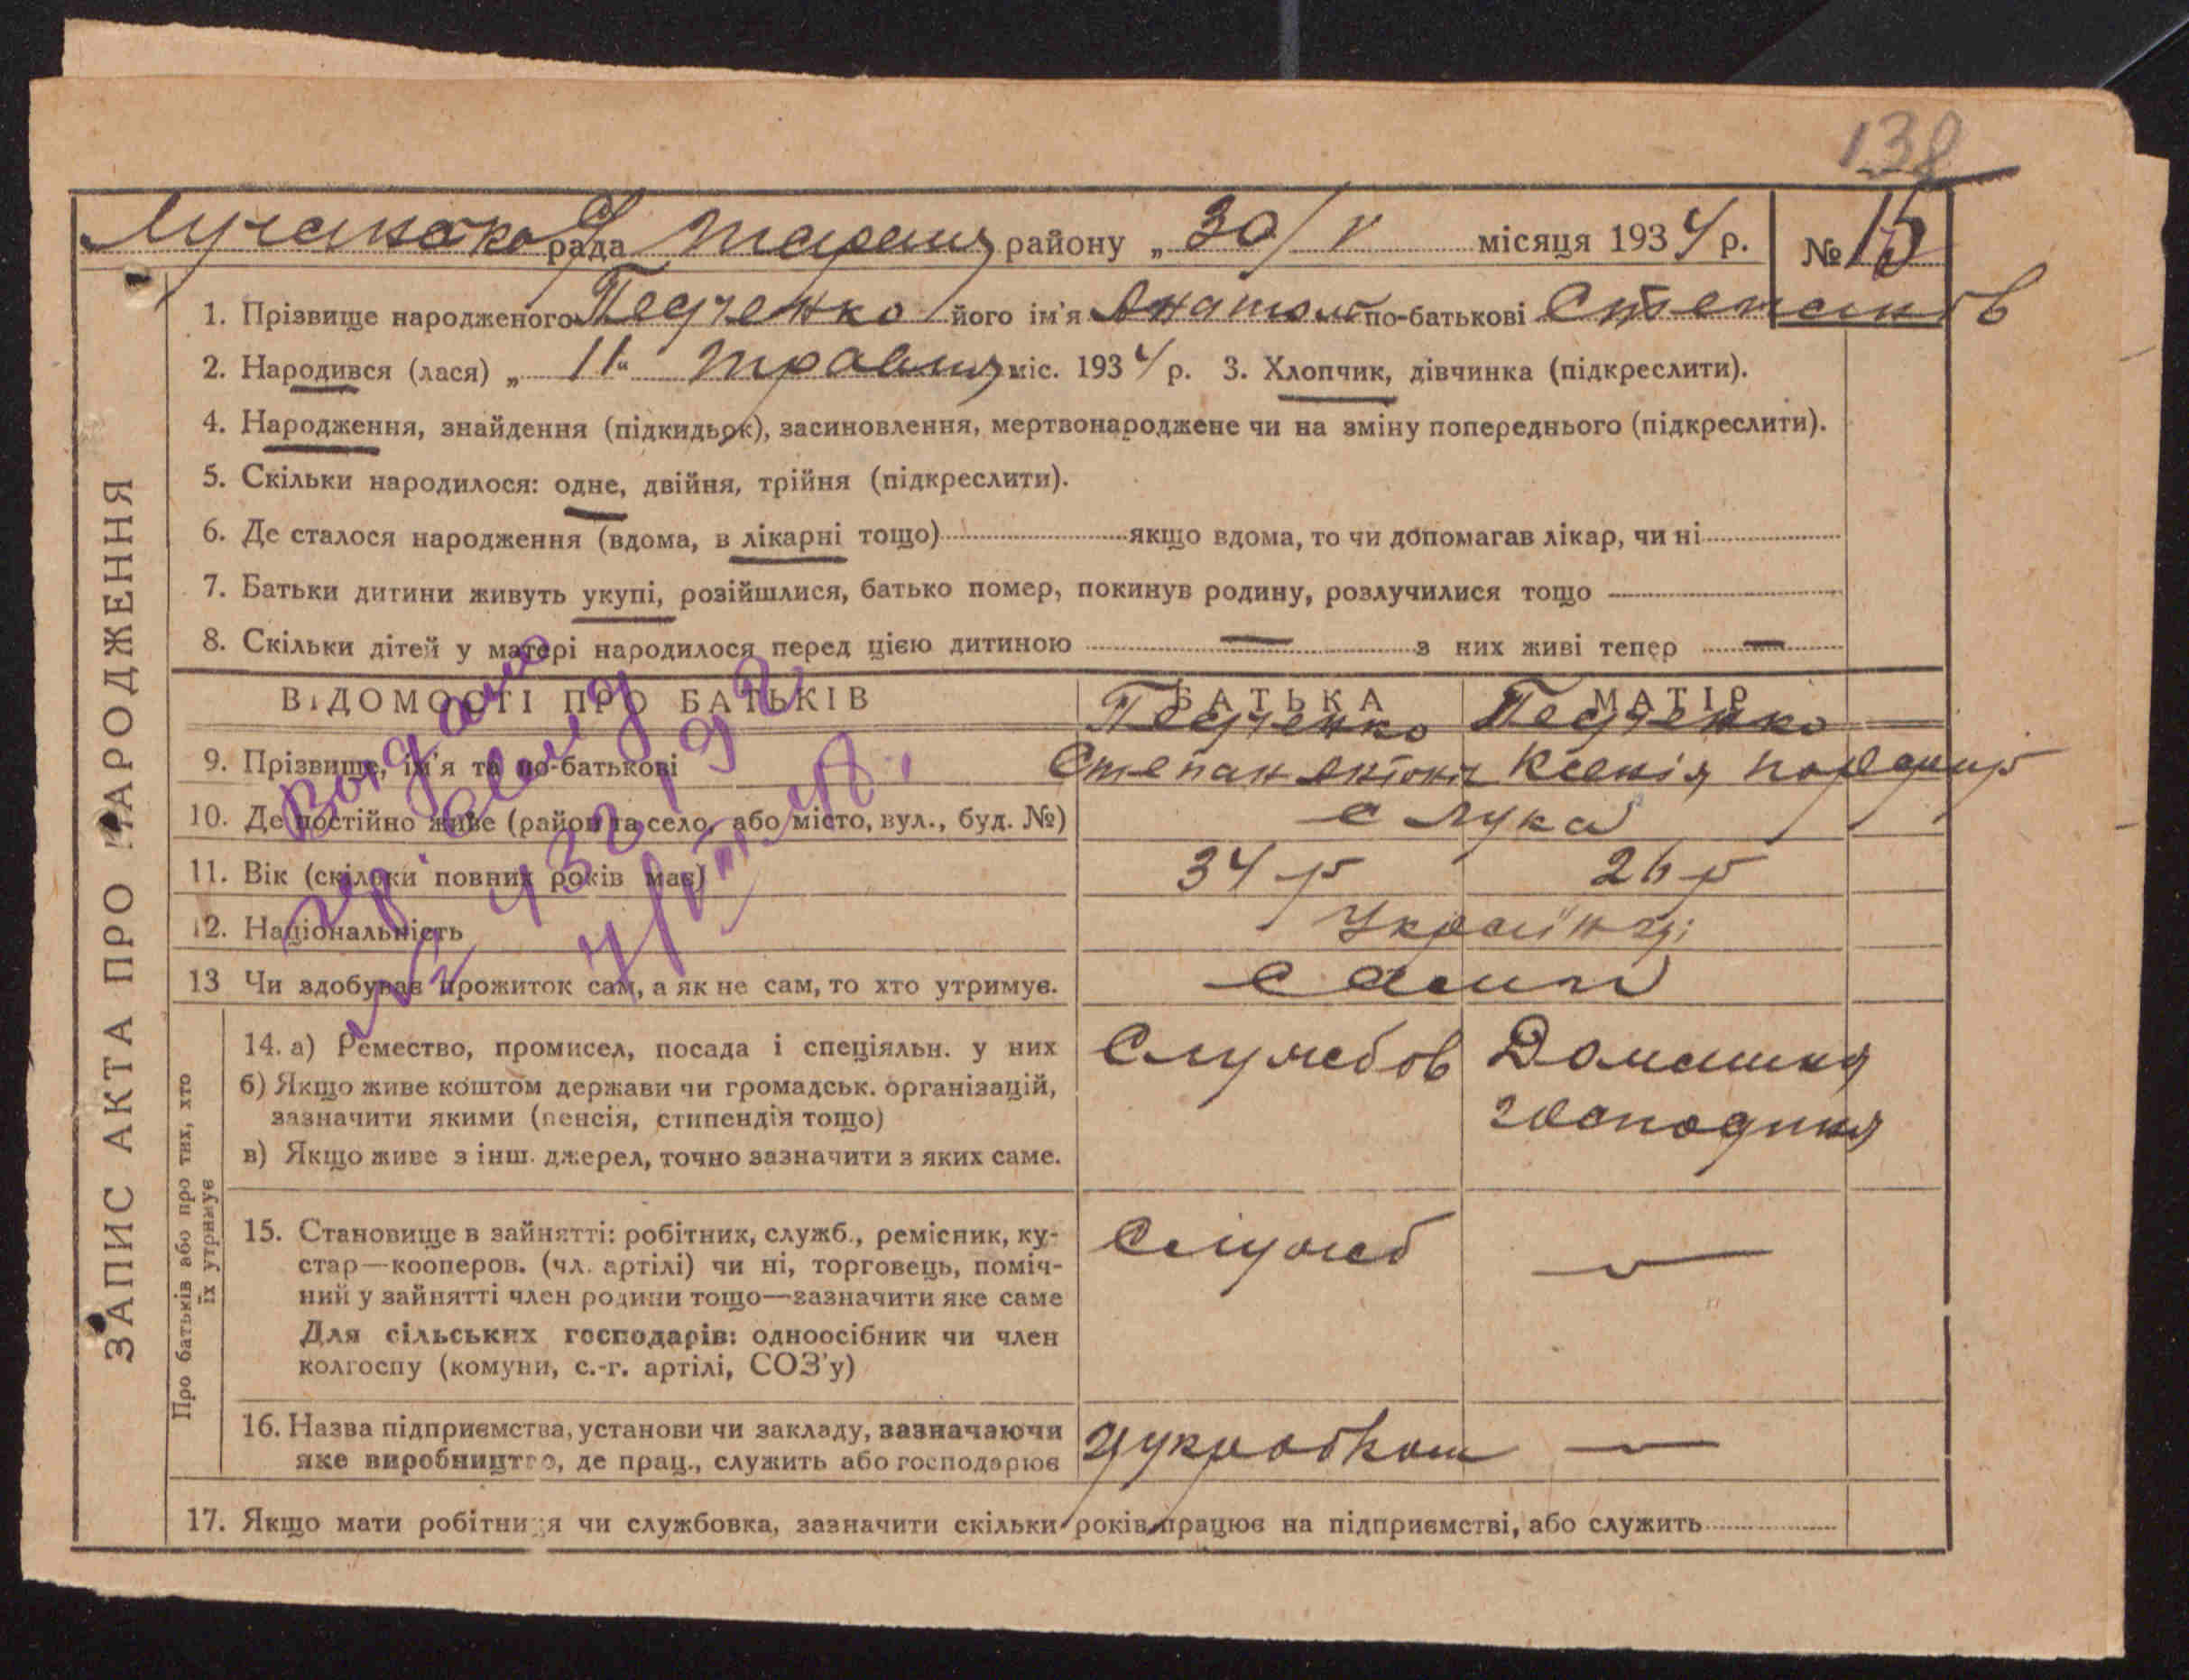 138
рада району „ 30/V місяця 1934 р. № 15
ЗАПИС АКТА ПРО НАРОДЖЕННЯ
1. Прізвище народженого його ім'я Анатолі по-батькові Степанов
2. Народився (лася) „ 11 " травня міс. 1934 р. 3. Хлопчик, дівчинка (підкреслити).
4. Народження, знайдення (підкидьок), засиновлення, мертвонароджене чи на зміну попереднього (підкреслити).
5. Скільки народилося: одне, двійня, трійня (підкреслити).
6. Де сталося народження (вдома, в лікарні тощо) якщо вдома, то чи допомагав лікар, чи ні
7. Батьки дитини живуть укупі, розійшлися, батько помер, покинув родину, розлучилися тощо
8. Скільки дітей у матері народилося перед цією дитиною — з них живі тепер —
ВІДОМОСТІ ПРО БАТЬКІВ БАТЬКА МАТІР
9. Прізвище, ім'я та по-батькові Степан Ксенія
10. Де постійно живе (район та село, або місто, вул., буд. №) с Лука
11. Вік (скільки повних років має) 34 р 26 р
12. Національність Українці
13 Чи здобував прожиток сам, а як не сам, то хто утримує. сами
Про батьків або про тих, хто
їх утримує
14. а) Ремество, промисел, посада і спеціяльн. у них Службов Домашня
б) Якщо живе коштом держави чи громадськ. організацій, господиня
зазначити якими (пенсія, стипендія тощо)
в) Якщо живе з інш. джерел, точно зазначити з яких саме.
15. Становище в зайнятті: робітник, служб., ремісник, ку- Служб —
стар—кооперов. (чл. артілі) чи ні, торговець, поміч-
ний у зайнятті член родини тощо—зазначити яке саме
Для сільських господарів: одноосібник чи член
колгоспу (комуни, с.-г. артілі, СОЗ'у)
16. Назва підприємства, установи чи закладу, зазначаючи —
яке виробництво, де прац., служить або господарює
17. Якщо мати робітниця чи службовка, зазначити скільки років працює на підприємстві, або служить